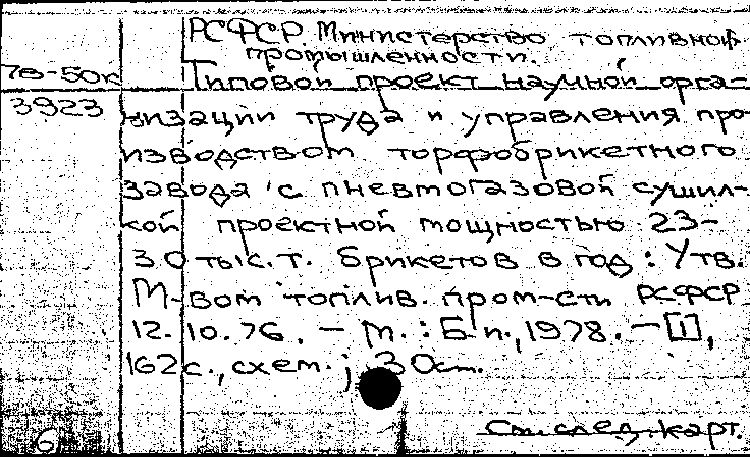 РСФСР. Министерство топливной
промышленности.
78-50к Типовой проект научной орга-
3923 низации труда и управления про-
изводством торфобрикетного
завода с пневмогазовой сушил-
кой проектной мощностью 23-
30 тыс. т. брикетов в год: Утв.
М-вом топлив. пром-сти РСФСР
12.10.76. – М.: Б и., 1978. – [1],
162 с., схем.; 30 см.
См. след. карт.
6